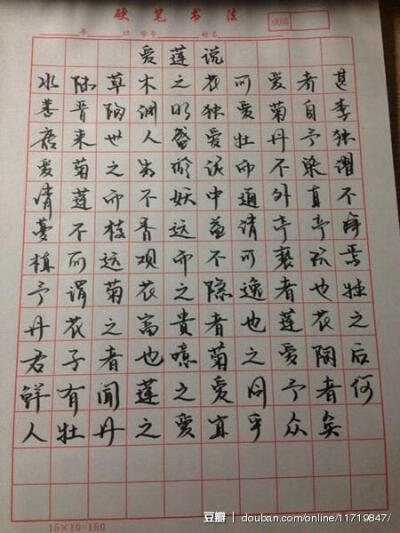 硬笔书法
成绩
年 班 学号 姓名
爱莲说
水陆草木之花可爱者甚
善晋陶渊明独爱菊自李
唐来世人盛爱牡丹予独
爱菊之出淤泥而不染濯
清莲而不妖中通外直不
蔓不枝香远益清亭亭净
植可远观而不可亵玩焉
予谓菊花之隐逸者也牡
丹花之富贵者也莲花之
君子者也噫菊之爱陶后
鲜有闻莲之爱同予者何
人牡丹之爱宜乎众矣
15×10=150
豆瓣 | douban.com/online/11719847/